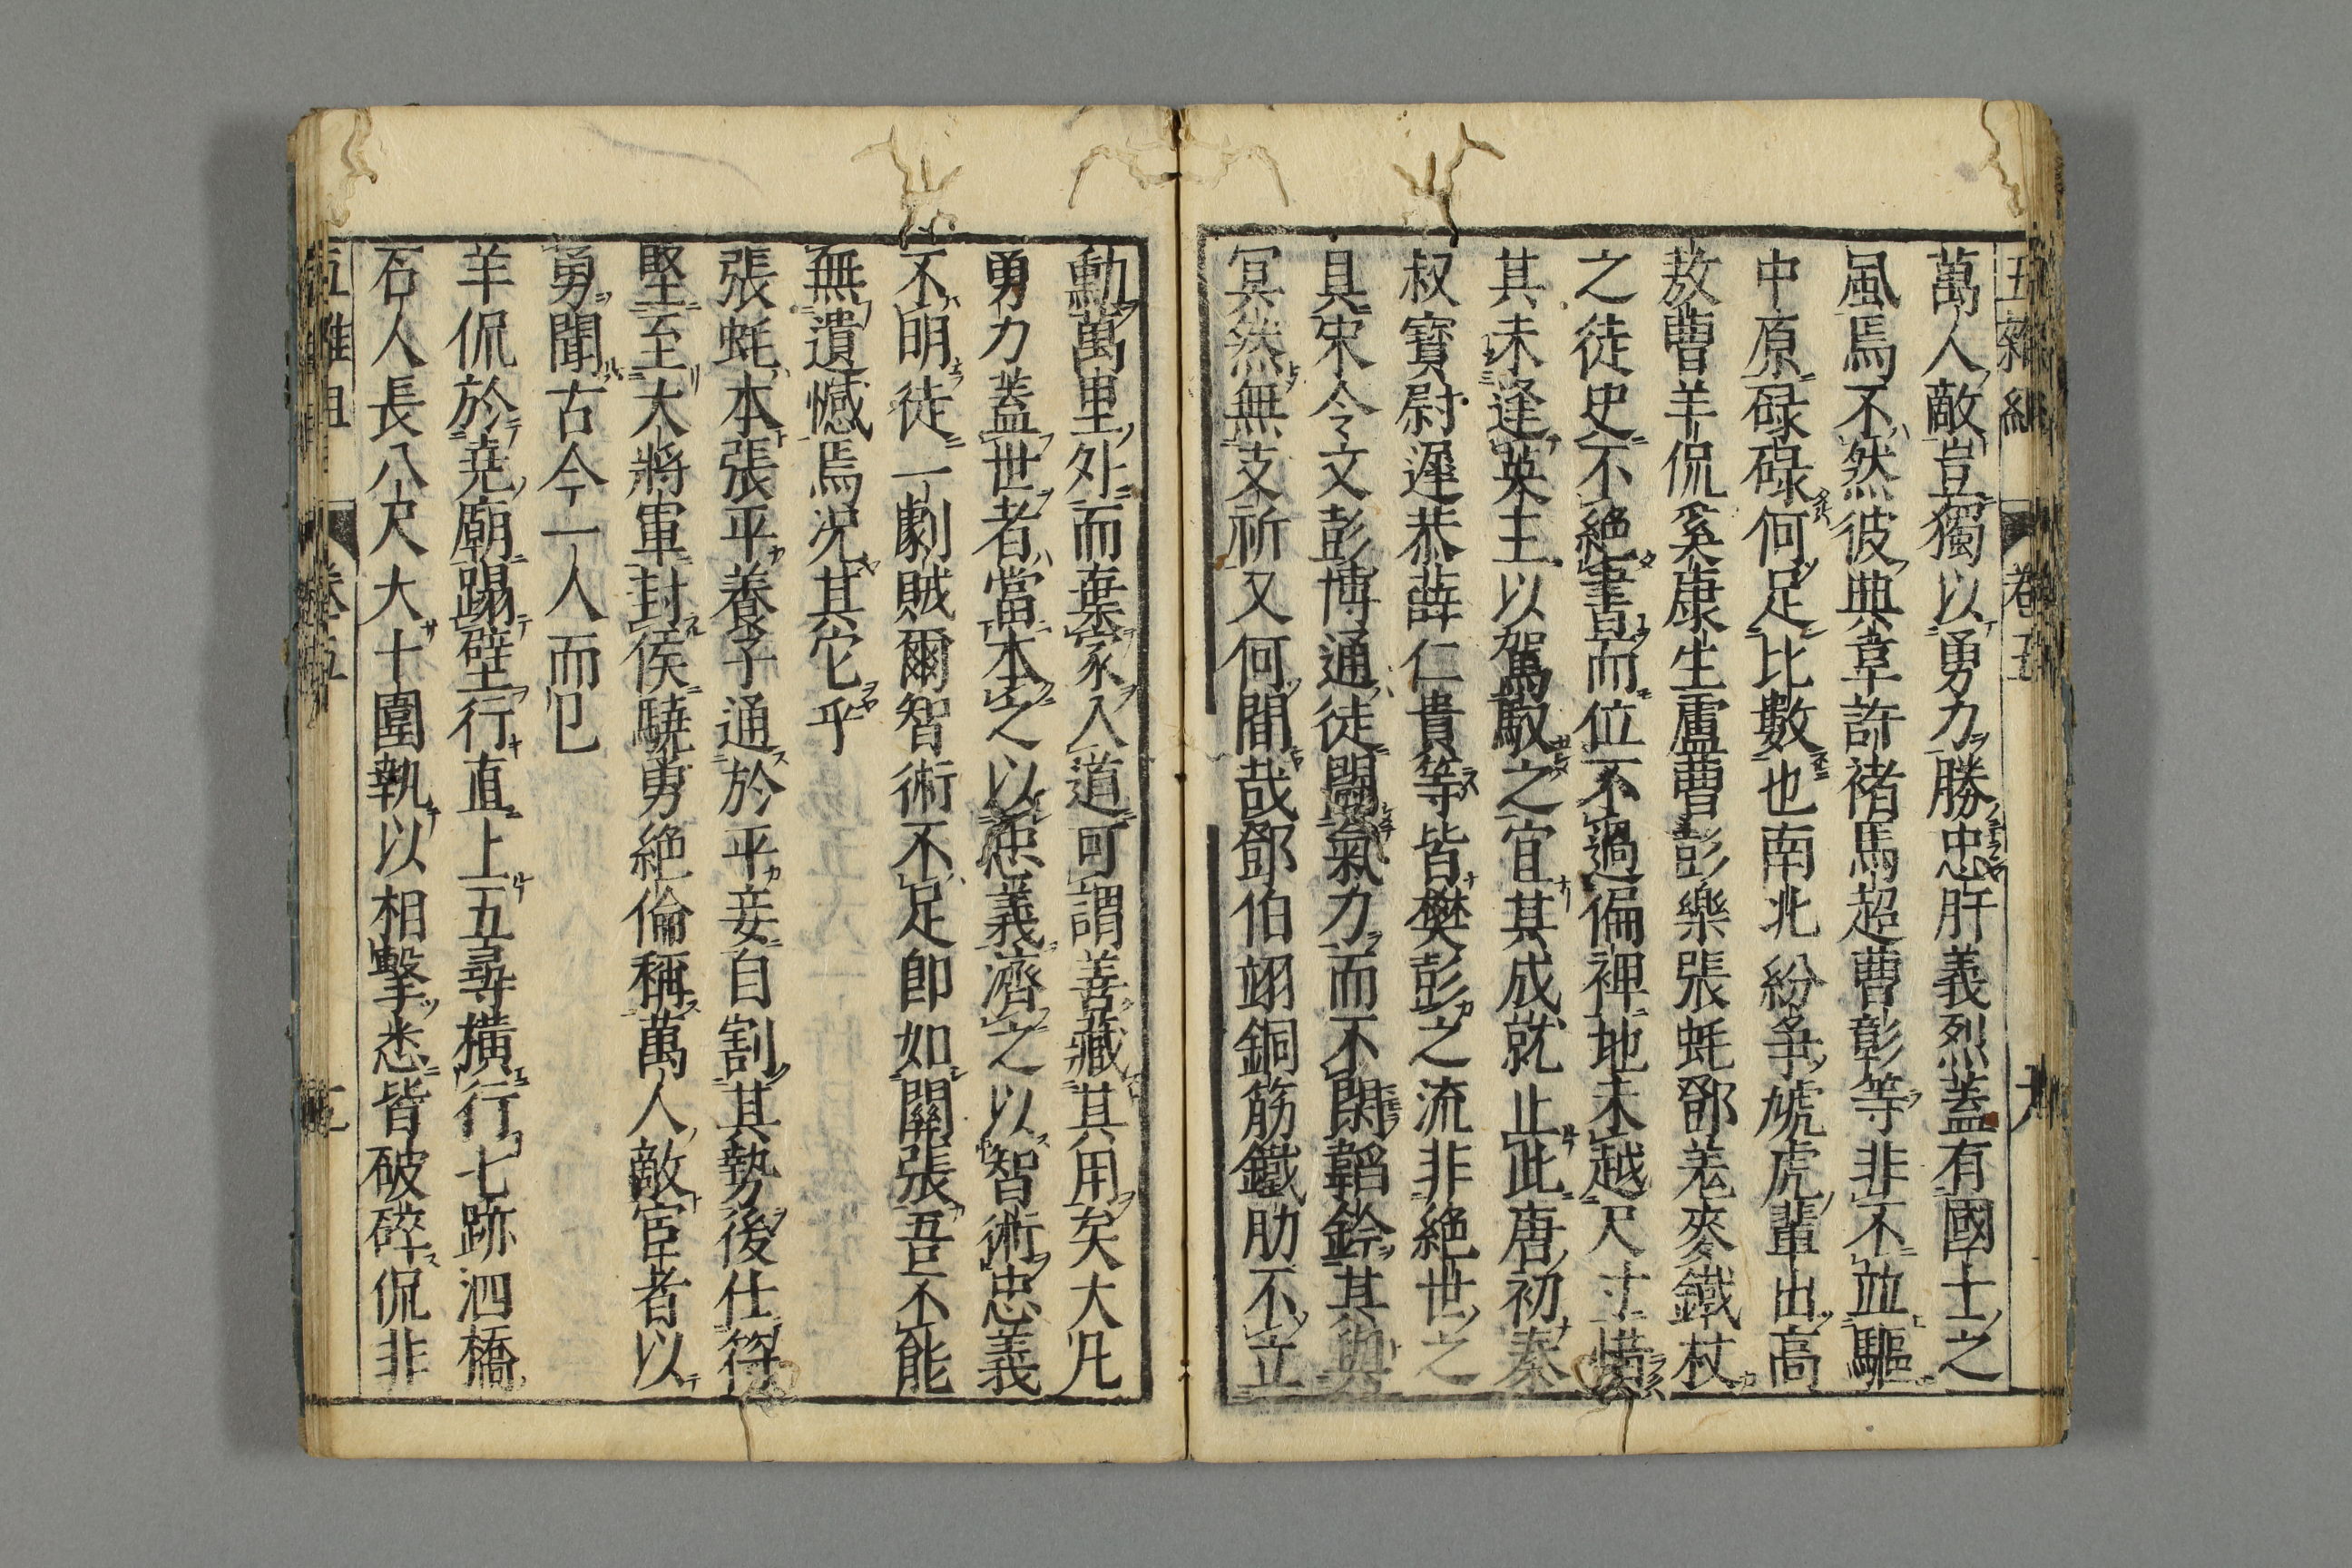 五雜組 卷五
萬人敵豈獨以勇力勝忠肝義烈蓋有國士之
風焉不然彼典韋許褚馬超曹彰等非不並驅
中原碌碌何足比數也南北紛爭虓虎輩出高
敖曹羊侃奚康生盧曹彭樂張蚝鄧羌麥鐵杖
之徒史不絕書而位不過偏裨地未越尺寸惜
其未逢英主以駕馭之宜其成就止此唐初秦
叔寶尉遲恭薛仁貴等皆樊彭之流非絕世之
具宋令文彭博通徒鬪氣力而不閑韜鈐其與
冥然無支祈又何間哉鄧伯翊銅筋鐵肋不立
勳萬里外而棄家入道可謂善藏其用矣大凡
勇力蓋世者當本之以忠義濟之以智術忠義
不明徒一劇賊爾智術不足即如關張吾不能
無遺憾焉況其它乎
張蚝本張平養子通於平妾自割其勢後仕符
堅至大將軍封侯驍勇絕倫稱萬人敵宦者以
勇聞古今一人而已
羊侃於堯廟蹋壁行直上五尋橫行七跡泗橋
石人長八尺大十圍執以相擊悉皆破碎侃非
五雜組 卷五